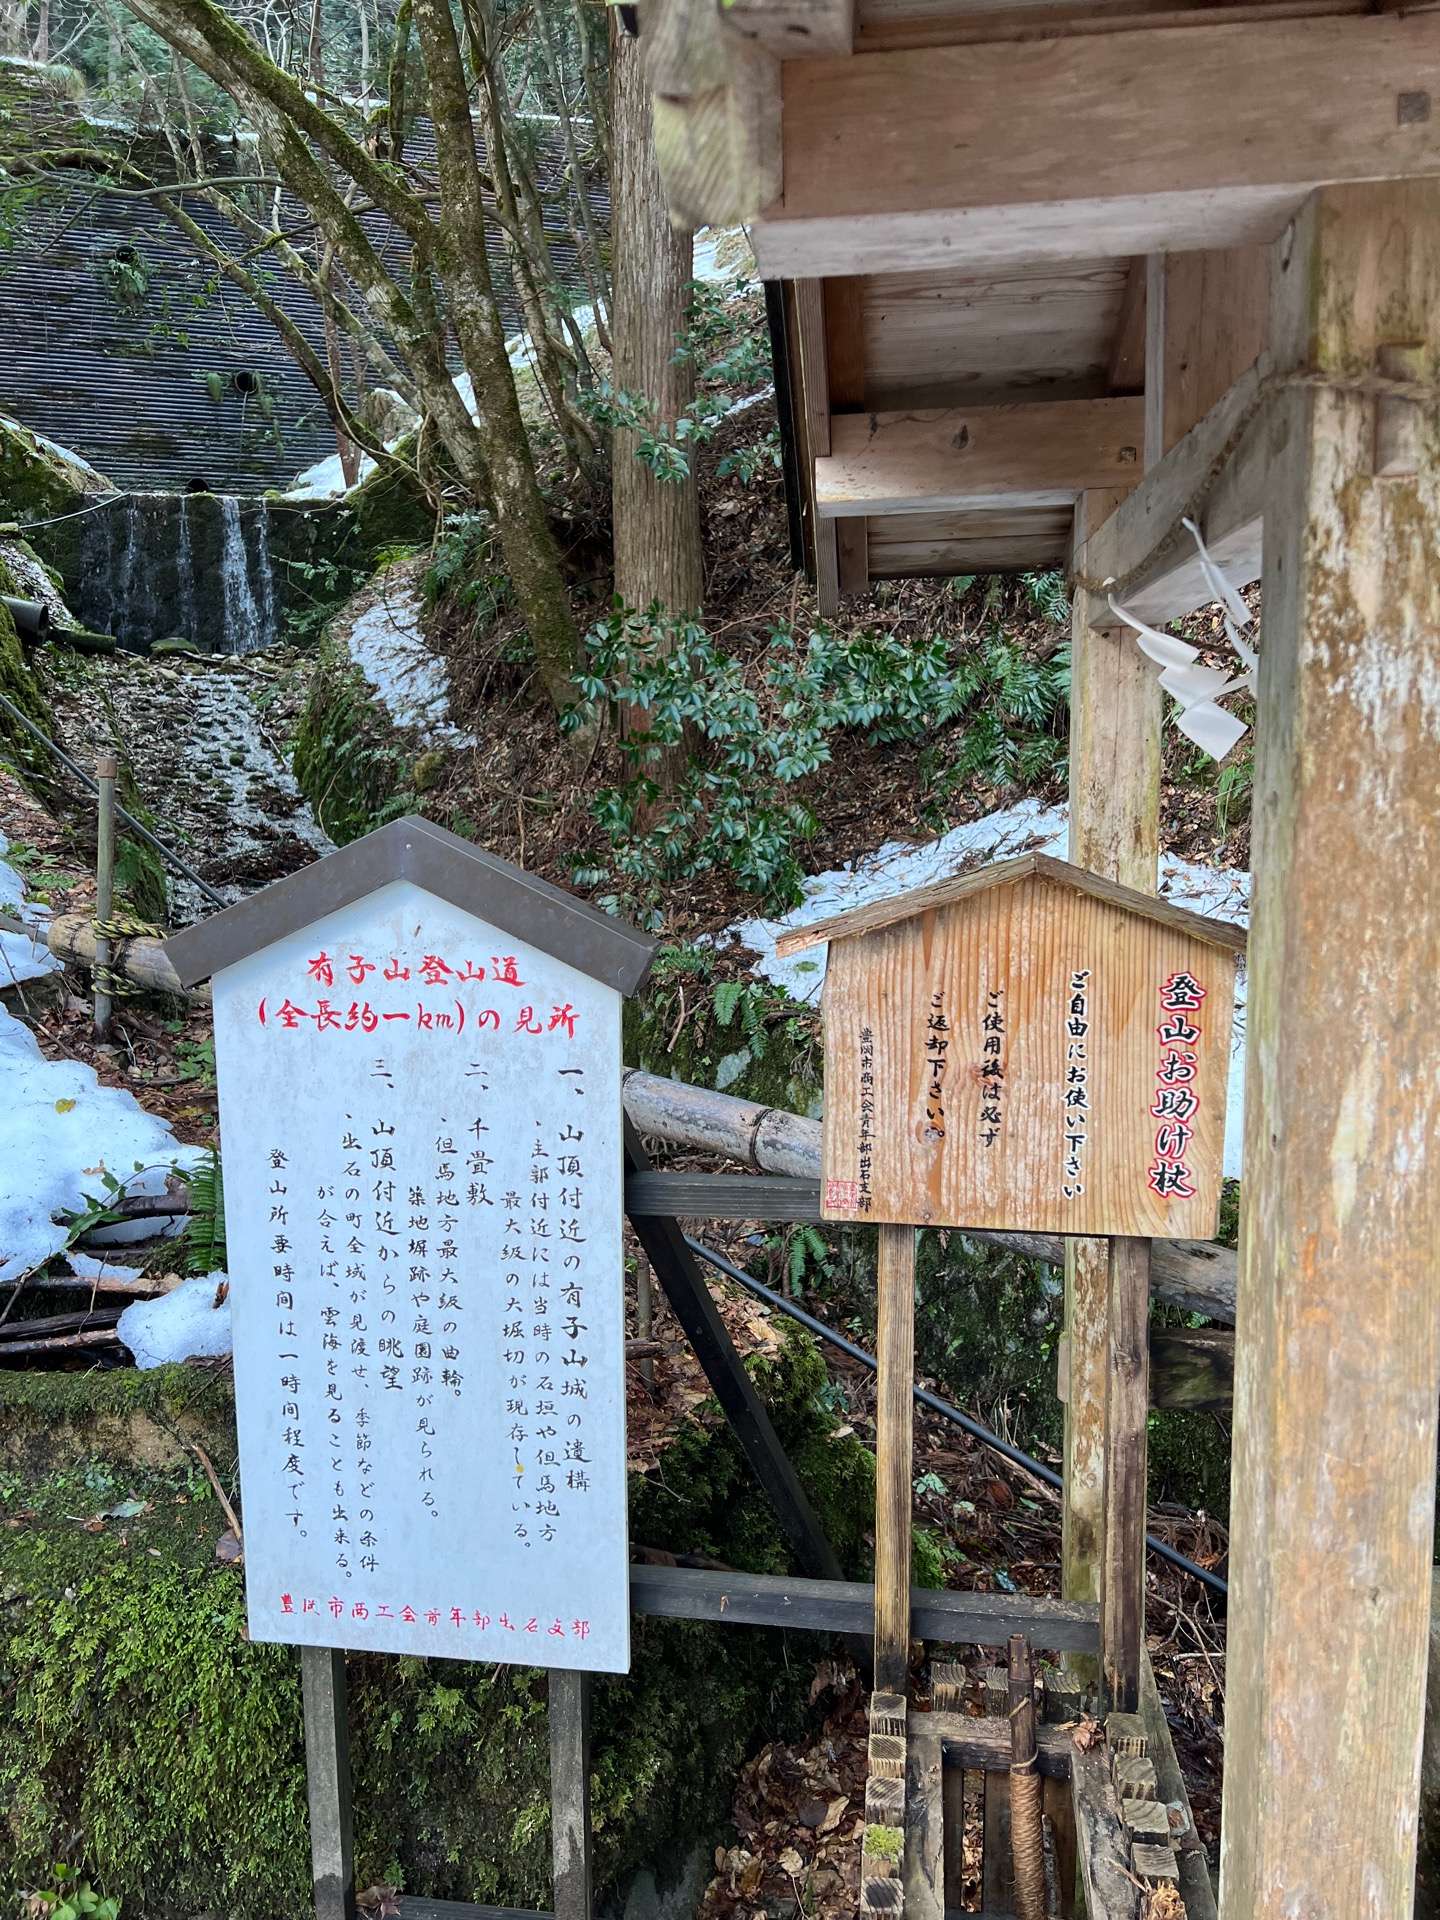 有子山登山道
(全長約一km)の見所
一、山頂付近の有子山城の遺構
・主郭付近には当時の石垣や但馬地方
最大級の大堀切が現存している。
二、千畳敷
・但馬地方最大級の曲輪。
築地塀跡や庭園跡が見られる。
三、山頂付近からの眺望
・出石の町全域が見渡せ、季節などの条件
が合えば、雲海を見ることも出来る。
登山所要時間は一時間程度です。
豊岡市商工会青年部出石支部
登山お助け杖
ご自由にお使い下さい
ご使用後は必ず
ご返却下さい。
豊岡市商工会青年部出石支部